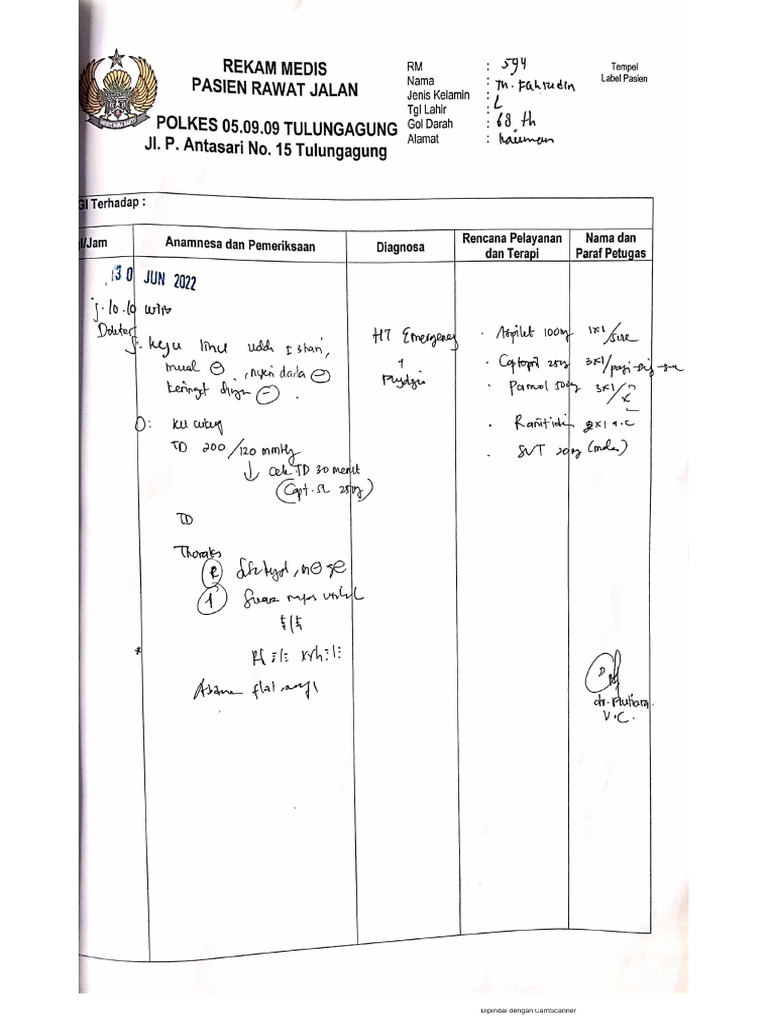 REKAM MEDIS
PASIEN RAWAT JALAN
POLKES 05.09.09 TULUNGAGUNG
Jl. P. Antasari No. 15 Tulungagung
RM : 594
Nama : Tn. Fahrudin
Jenis Kelamin : L
Tgl Lahir :
Gol Darah : 68 th
Alamat : Kauman
Tempel
Label Pasien
GI Terhadap :
l/Jam
Anamnesa dan Pemeriksaan
Diagnosa
Rencana Pelayanan
dan Terapi
Nama dan
Paraf Petugas
30 JUN 2022
j. 10.10 WIB
Dokter
S: keju linu
mual ⊖, nyeri dada ⊖
keringat dingin (-).
O: KU cukup
TD 200/120 mmHg
↓ Cek TD 30 menit
(Capt. SL 25mg)
TD
Thoraks
Suara napas
Rh Wh
Abdomen flat
HT Emergency
+
· Aspilet 100mg 1x1/sore
· Captopril 25mg 3x1/
· Pamol 500mg 3x1/
· Ranitidin 2x1 a.c
· SVT 20mg (malam)
dr. Mutiara
V.C.
Dipindai dengan CamScanner